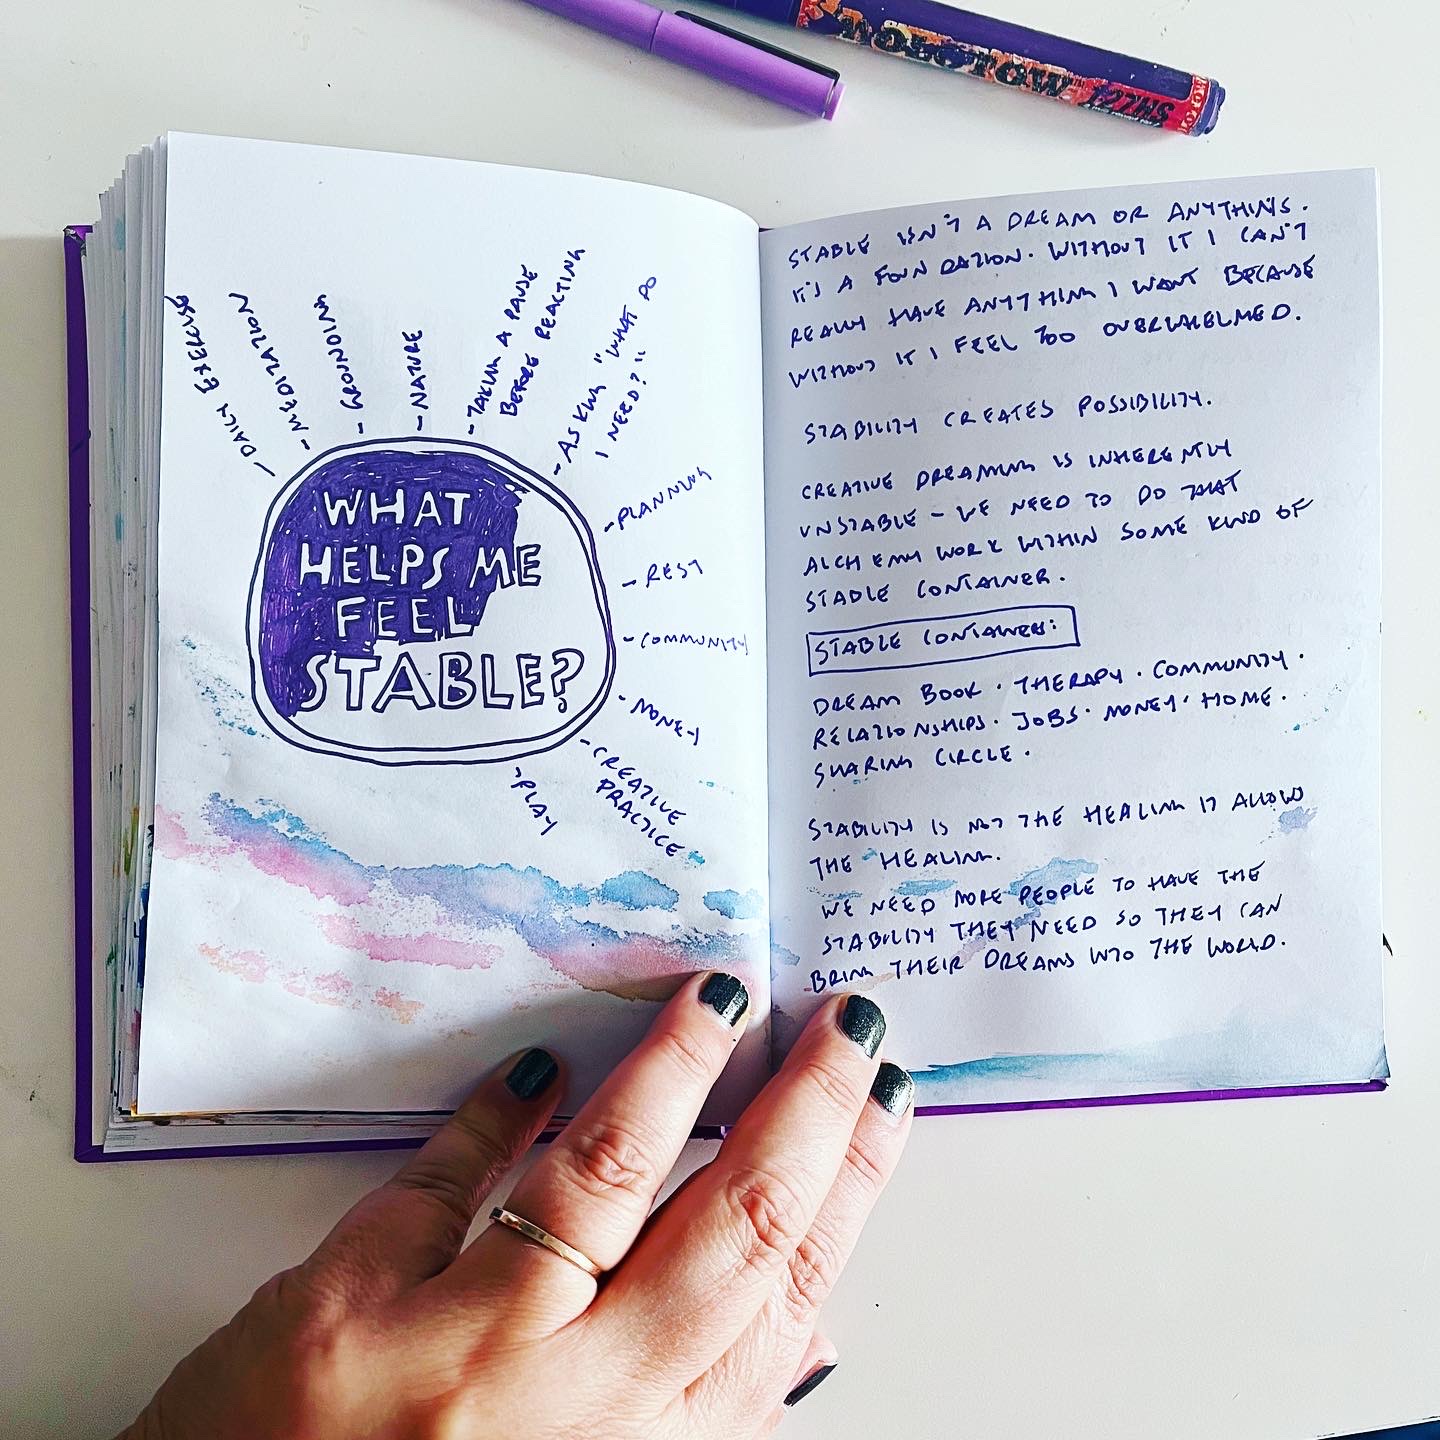 MOLOTOW
127HS
DAILY EXERCISE
- MEDITATION
- GROUNDING
- NATURE
- TAKING A PAUSE
BEFORE REACTING
- ASKING "WHAT DO
I NEED?"
- PLANNING
- REST
- COMMUNITY
- MONEY
- CREATIVE
PRACTICE
- PLAY
WHAT
HELPS ME
FEEL
STABLE?
STABLE ISN'T A DREAM OR ANYTHING.
IT'S A FOUNDATION. WITHOUT IT I CAN'T
REALLY HAVE ANYTHING I WANT BECAUSE
WITHOUT IT I FEEL TOO OVERWHELMED.
STABILITY CREATES POSSIBILITY.
CREATIVE DREAMING IS INHERENTLY
UNSTABLE - WE NEED TO DO THAT
ALCHEMY WORK WITHIN SOME KIND OF
STABLE CONTAINER.
STABLE CONTAINERS:
DREAM BOOK · THERAPY · COMMUNITY ·
RELATIONSHIPS · JOBS · MONEY · HOME ·
SHARING CIRCLE ·
STABILITY IS NOT THE HEALING IT ALLOWS
THE HEALING.
WE NEED MORE PEOPLE TO HAVE THE
STABILITY THEY NEED SO THEY CAN
BRING THEIR DREAMS INTO THE WORLD.